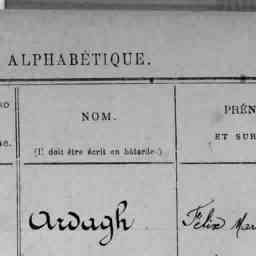 ALPHABÉTIQUE.
RO
NOM.
PRÉN
ET SUR
(Il doit être écrit en bâtarde.)
Ardagh
Félix Mar